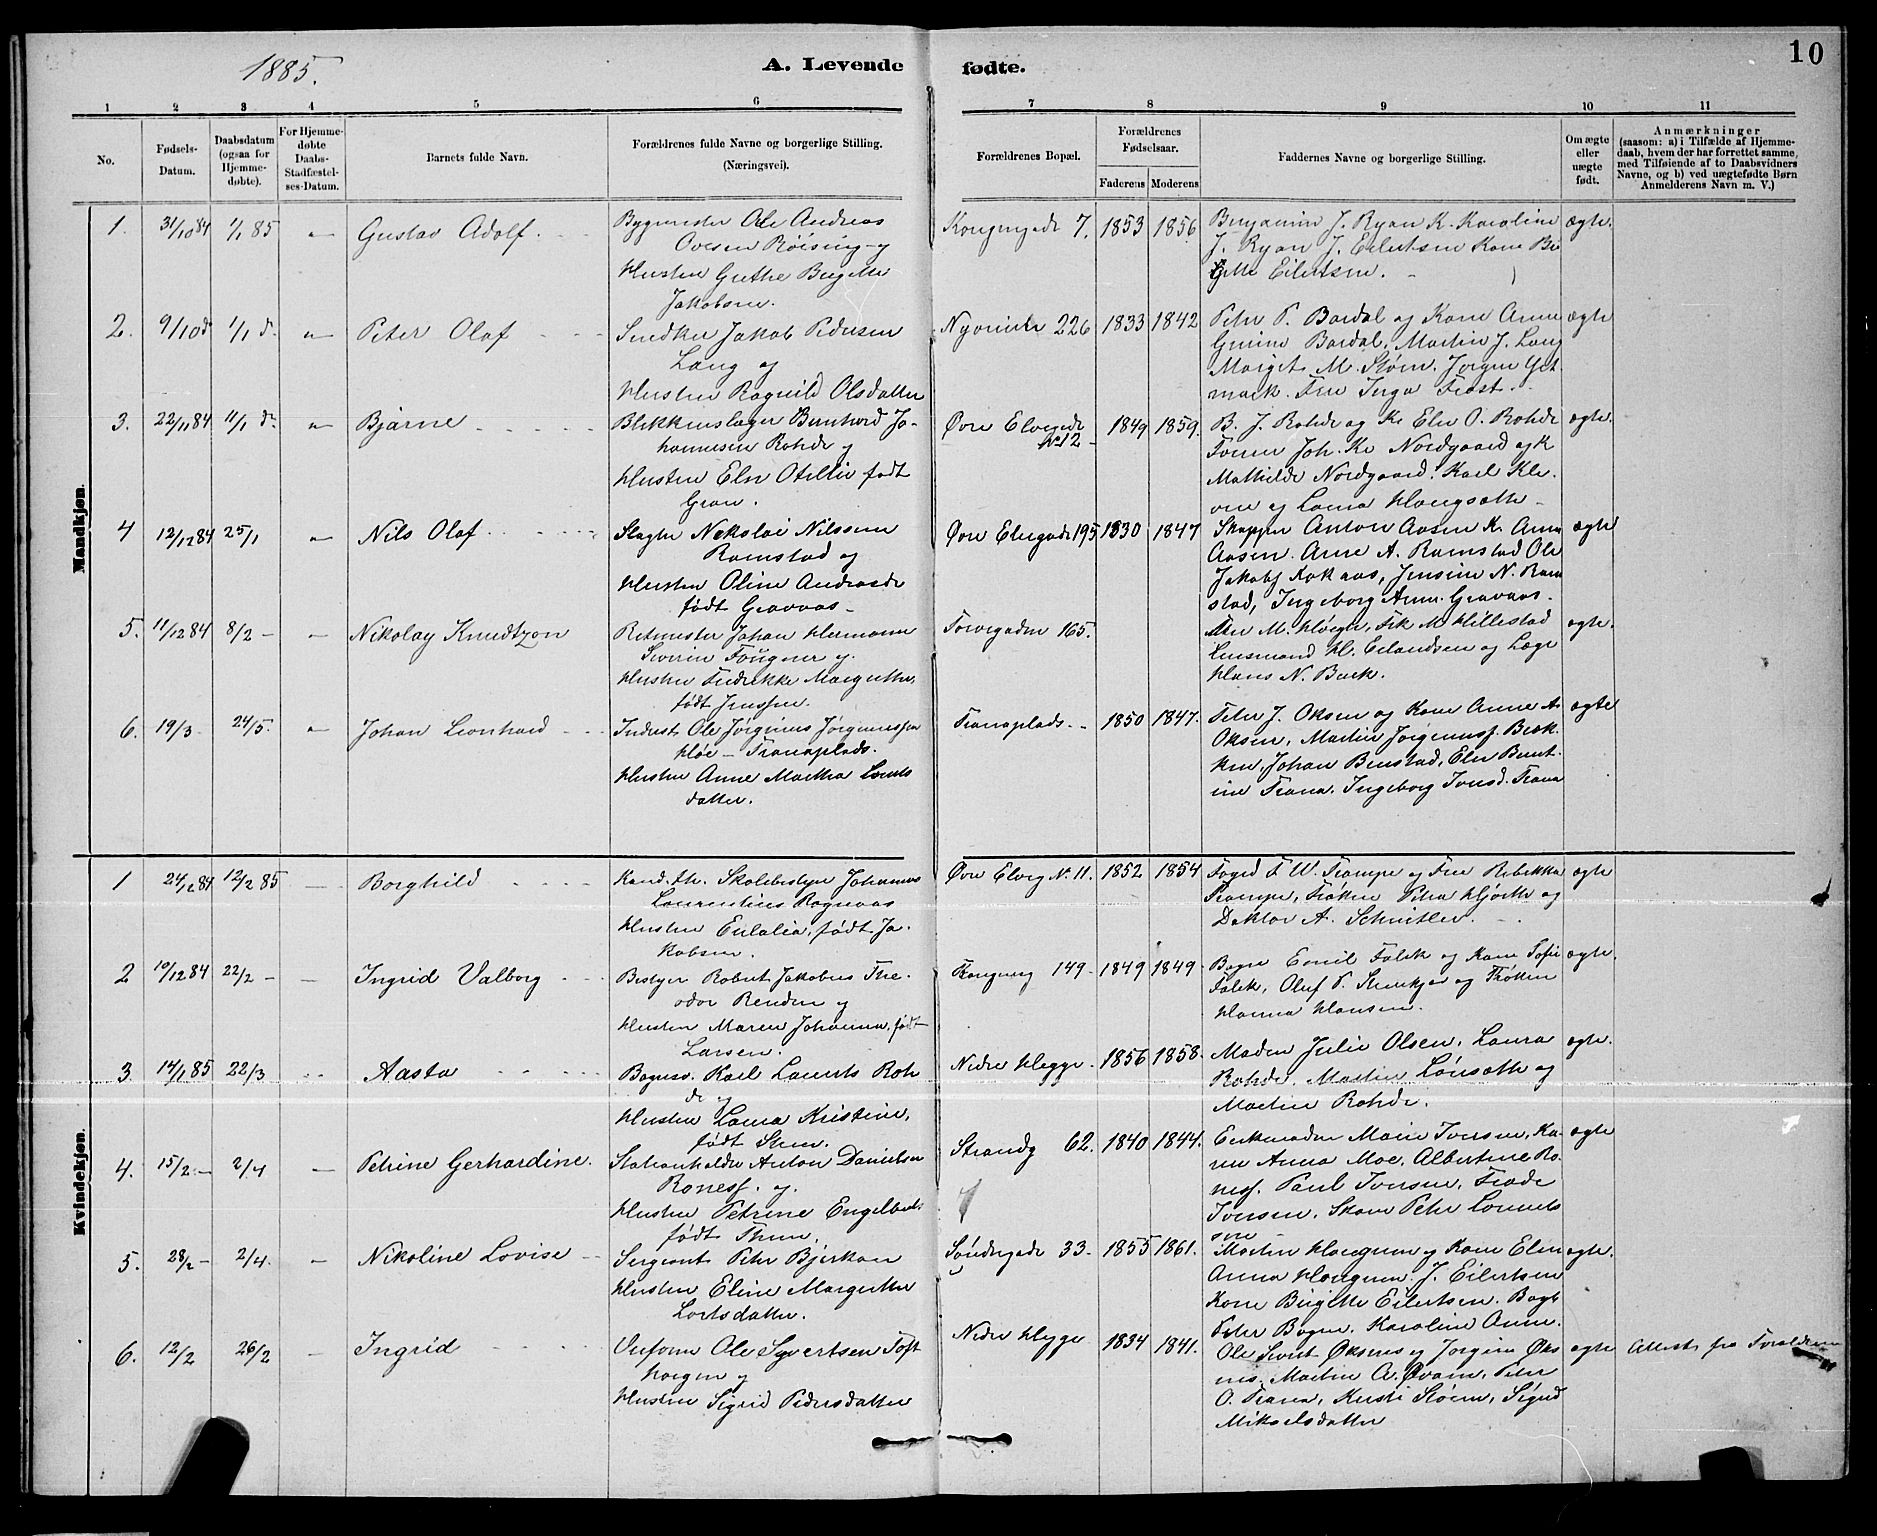 1885.
A. Levende fødte.
10
1 2 3 4 5 6 7 8 9 10 11
No.
Fødsels-
Datum.
Daabsdatum
(ogsaa for
Hjemme-
døbte).
For Hjemme-
døbte
Daabs-
Stadfæstel-
ses-Datum.
Barnets fulde Navn.
Forældrenes fulde Navne og borgerlige Stilling.
(Næringsvei).
Forældrenes Bopæl.
Forældrenes
Fødselsaar.
Faderens Moderens
Faddernes Navne og borgerlige Stilling.
Om ægte
eller
uægte
født.
Anmærkninger
(saasom: a) i Tilfælde af Hjemme-
daab, hvem der har forrettet samme,
med Tilføiende af to Daabsvidners
Navne, og b) ved uægtefødte Børn
Anmelderens Navn m. V.)
Mandkjøn.
1. 31/10 84 1/1 85 " Gustav Adolf
Bygmester Ole Andreas
Ovesen Röising og
Hustru Grethe Birgitte
Jakobsen.
Kongensgade 7. 1853 1856
Benjamin J. Ryan K. Karoline
J. Ryan J. Eilertsen Kone Bir
gitte Eilertsen.
ægte.
2. 9/10 d 1/1 d. " Peter Olaf
Snedker Jakob Pedersen
Lang og
Hustru Ragnild Olsdatter
226 1833 1842
Peter P. Bardal og Kone Anne
Bardal, Martin J. Lang
Margit M. Støen. Jørgen
Fru Inga Frost.
ægte
3. 22/11 84 11/1 d. " Bjarne
Blikkenslager Bernhard Jo-
hannesen Rohde og
Hustru Elen Otellie født
Gran.
Øvre Elvegade
No 12 1849 1859.
B. J. Rohde og Ke Elen O. Rohde
Joh. Ke Nordgaard og K
Mathilde Nordgaard. Karl
og Laura
ægte.
4 12/12 84 25/1 " Nils Olaf
Slagter Nekolai Nilssen
Ramstad og
Hustru Oline Andrasdr
født Gravaas
Øvre Elvegade 195 1830 1847
Skipper Anton Aasen K. Anna
Aasen. Arne A. Ramstad Ole
Jakobs Kokaas, Jensine N. Ram
stad, Ingeborg Anna Gravaas.
ægte
5. 11/12 84 8/2 - " Nikolay Knudtzon
Retmester Johan Hermann
Severin Fougner og
Hustru Fredrikke Margrethe
født Jenssen.
Torvegaden 165.
Fru M. Høegh, Frk M Hillestad
Lensmand H. Erlandsen og Læge
Hans N. Buck.
ægte.
6. 19/3 24/5. " Johan Leonhard
Indust Ole Jørginus Jørgenssen
Høe - Tranaplads.
Hustru Anne Martha Lornts
datter.
Tranaplads. 1850 1847.
Peter J. Oksen og Kone Anne A
Oksen, Martin Jørgenss. Bræk
ken, Johan Benstad, Elen Bernt-
ine Trana. Ingeborg Ivarsd. Trana
ægte
Kvindekjøn.
1 24/12 84 12/2 85 Borghild
Kand. th. Skolebestyrer Johannes
Laurentius Ragnaas
Hustru Eulalia, født Ja-
kobsen.
Øvre Elveg N. 11. 1852 1854
Foged F W. Trampe og Fru Rebekka
Trampe, Frøken Petra Hjorth og
Doktor A. Schnitler.
ægte
2 10/12 84 22/2 - Ingrid Valborg
Bestyrer Robert Jakobus The-
odor Renden og
Hustru Maren Johanna, født
Larsen.
149 1849 1849
Bager Emil Falck og Kone Sofie
Falck, Oluf P. Stenkjær og Frøken
Hanna Hansen.
ægte.
3. 14/1 85 22/3 Aasta
Karl Laurits Roh
de og
Hustru Laura Kristine,
født Steen.
Nedre Hegge 1856 1858.
Maden Julie Olsen, Laura
Rohde, Martin Lønsæth og
Martin Rohde.
ægte.
4. 15/2 - 2/4 Petrine Gerhardine.
Stationholder Anton Danielsen
Roness. og.
Hustru Petrine Engelbert.
født Thun.
Strandg 62. 1840 1844.
Enkemaden Marie Iversen, Ka-
ren Anna Moe, Albertine Ro-
ness. Paul Iversen, Frode
Iversen, Skom Peter Lornts
sen
ægte
5. 28/2 - 2/4. Nikoline Lovise
Sergeant Peter Bjerkan
Hustru Eline Margrethe
Lortsdatter.
Søndregade 33. 1855 1861.
Martin Haugum og Kone Elen
Anna Haugum. J. Eilertsen
Kone Birgitte Eilertsen. Bagb
Peter Bogne. Karoline Anne.
ægte.
6. 12/2 26/2 Ingrid
Ole Syvertsen Toft
haugen og
Hustru Sigrid Pedersdatter
Nedre Hegge 1834 1841.
Ole Sivert Øksnes og Jørgine Øks
nes. Martin A. Øvann, Peter
O. Trana, Kersti Støen, Sigrid
Mikkelsdatter
ægte
Attest fra Forældrene